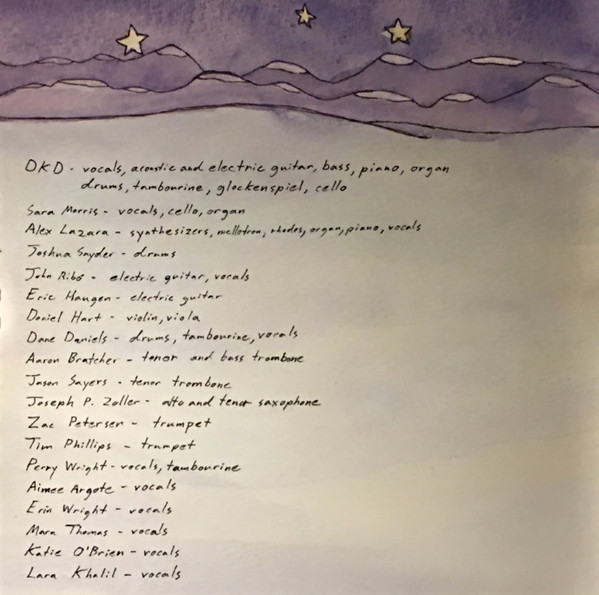 DKD - vocals, acoustic and electric guitar, bass, piano, organ
drums, tambourine, glockenspiel, cello
Sara Morris - vocals, cello, organ
Alex Lazara - synthesizers, mellotron, rhodes, organ, piano, vocals
Joshua Snyder - drums
John Ribó - electric guitar, vocals
Eric Haugen - electric guitar
Daniel Hart - violin, viola
Dane Daniels - drums, tambourine, vocals
Aaron Bratcher - tenor and bass trombone
Jason Sayers - tenor trombone
Joseph P. Zoller - alto and tenor saxophone
Zac Petersen - trumpet
Tim Phillips - trumpet
Perry Wright - vocals, tambourine
Aimee Argote - vocals
Erin Wright - vocals
Mara Thomas - vocals
Katie O'Brien - vocals
Lara Khalil - vocals